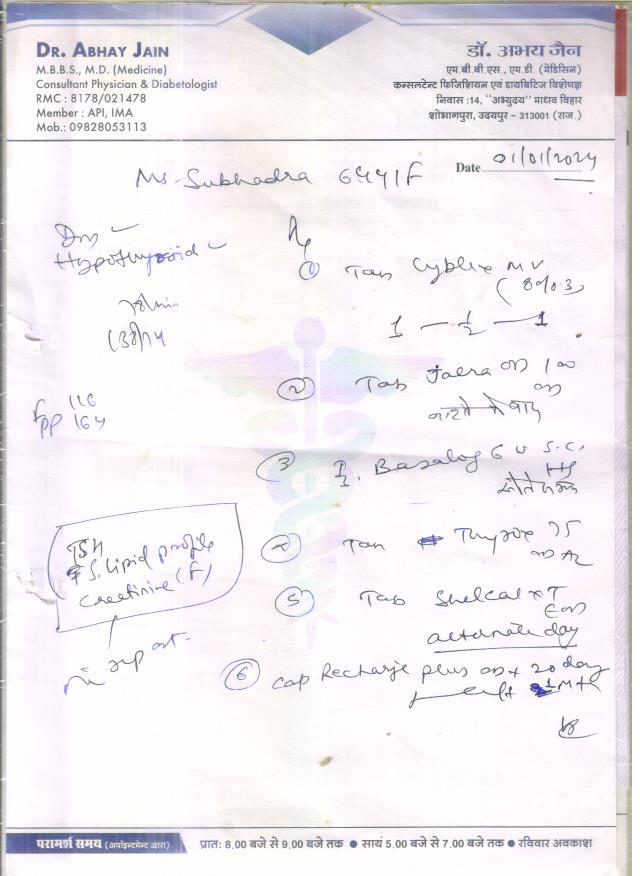 DR. ABHAY JAIN
M.B.B.S., M.D. (Medicine)
Consultant Physician & Diabetologist
RMC : 8178/021478
Member : API, IMA
Mob.: 09828053113
डॉ. अभय जैन
एम.बी.बी.एस., एम.डी. (मेडिसिन)
कन्सलटेन्ट फिजिशियन एवं डायबिटिज विशेषज्ञ
निवास :14, "अभ्युदय" माधव विहार
शोभागपुरा, उदयपुर - 313001 (राज.)
Date 01/01/2024
Ms. Subhadra 64y/F
Dm
Hypothyroid
F 116
PP 164
TSH
S. Lipid profile
Creatinine (F)
report
Rx
① Tab Cyblex MV
(80/0.3)
1 — ½ — 1
② Tab Jalra OD 100
③ Basalog 6 U S.C.
HS
④ Tab Thyrox 75
⑤ Tab Shelcal XT
OD
alternate day
⑥ Cap Recharje plus OD x 20 day
परामर्श समय (अपॉइन्टमेन्ट द्वारा)
प्रात: 8.00 बजे से 9.00 बजे तक ● सायं 5.00 बजे से 7.00 बजे तक ● रविवार अवकाश